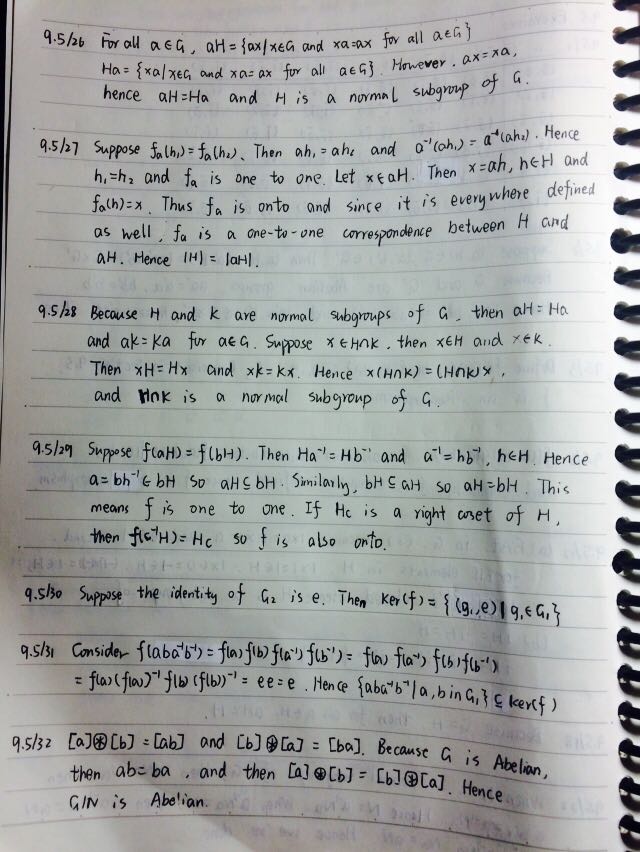 9.5/26 For all a∈G, aH = {ax/x∈G and xa=ax for all a∈G}
Ha = {xa/x∈G and xa=ax for all a∈G}. However. ax=xa,
hence aH=Ha and H is a normal subgroup of G.
9.5/27 Suppose fa(h1)=fa(h2). Then ah1=ah2 and a⁻¹(ah1)=a⁻¹(ah2). Hence
h1=h2 and fa is one to one. Let x∈aH. Then x=ah, h∈H and
fa(h)=x. Thus fa is onto and since it is everywhere defined
as well, fa is a one-to-one correspondence between H and
aH. Hence |H|=|aH|.
9.5/28 Because H and K are normal subgroups of G, then aH=Ha
and aK=Ka for a∈G. Suppose x∈H∩K, then x∈H and x∈K.
Then xH=Hx and xK=Kx. Hence x(H∩K)=(H∩K)x,
and H∩K is a normal subgroup of G.
9.5/29 Suppose f(aH)=f(bH). Then Ha⁻¹=Hb⁻¹ and a⁻¹=hb⁻¹, h∈H. Hence
a=bh⁻¹∈bH so aH⊆bH. Similarly, bH⊆aH so aH=bH. This
means f is one to one. If Hc is a right coset of H,
then f(c⁻¹H)=Hc so f is also onto.
9.5/30 Suppose the identity of G2 is e. Then Ker(f)={(g1,e)|g1∈G1}
9.5/31 Consider f(aba⁻¹b⁻¹)=f(a)f(b)f(a⁻¹)f(b⁻¹)=f(a)f(a⁻¹)f(b)f(b⁻¹)
=f(a)(f(a))⁻¹f(b)(f(b))⁻¹=ee=e. Hence {aba⁻¹b⁻¹|a,b in G1}⊆ker(f)
9.5/32 [a]⊛[b]=[ab] and [b]⊛[a]=[ba]. Because G is Abelian,
then ab=ba, and then [a]⊛[b]=[b]⊛[a]. Hence
G/N is Abelian.